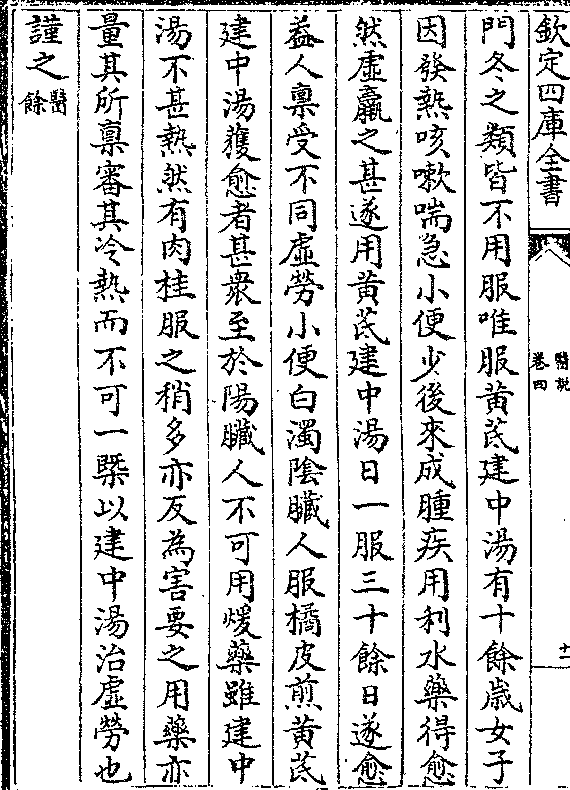 欽定四庫全書
醫說
卷四
十一
門冬之類皆不用服唯服黃茋建中湯有十餘歲女子
因發熱咳嗽喘急小便少後來成腫疾用利水藥得愈
然虛羸之甚遂用黃茋建中湯日一服三十餘日遂愈
葢人稟受不同虛勞小便白濁陰臟人服橘皮煎黃茋
建中湯獲愈者甚衆至於陽臟人不可用煖藥雖建中
湯不甚熱然有肉桂服之稍多亦反為害要之用藥亦
量其所稟審其冷熱而不可一槩以建中湯治虛勞也
謹之醫餘